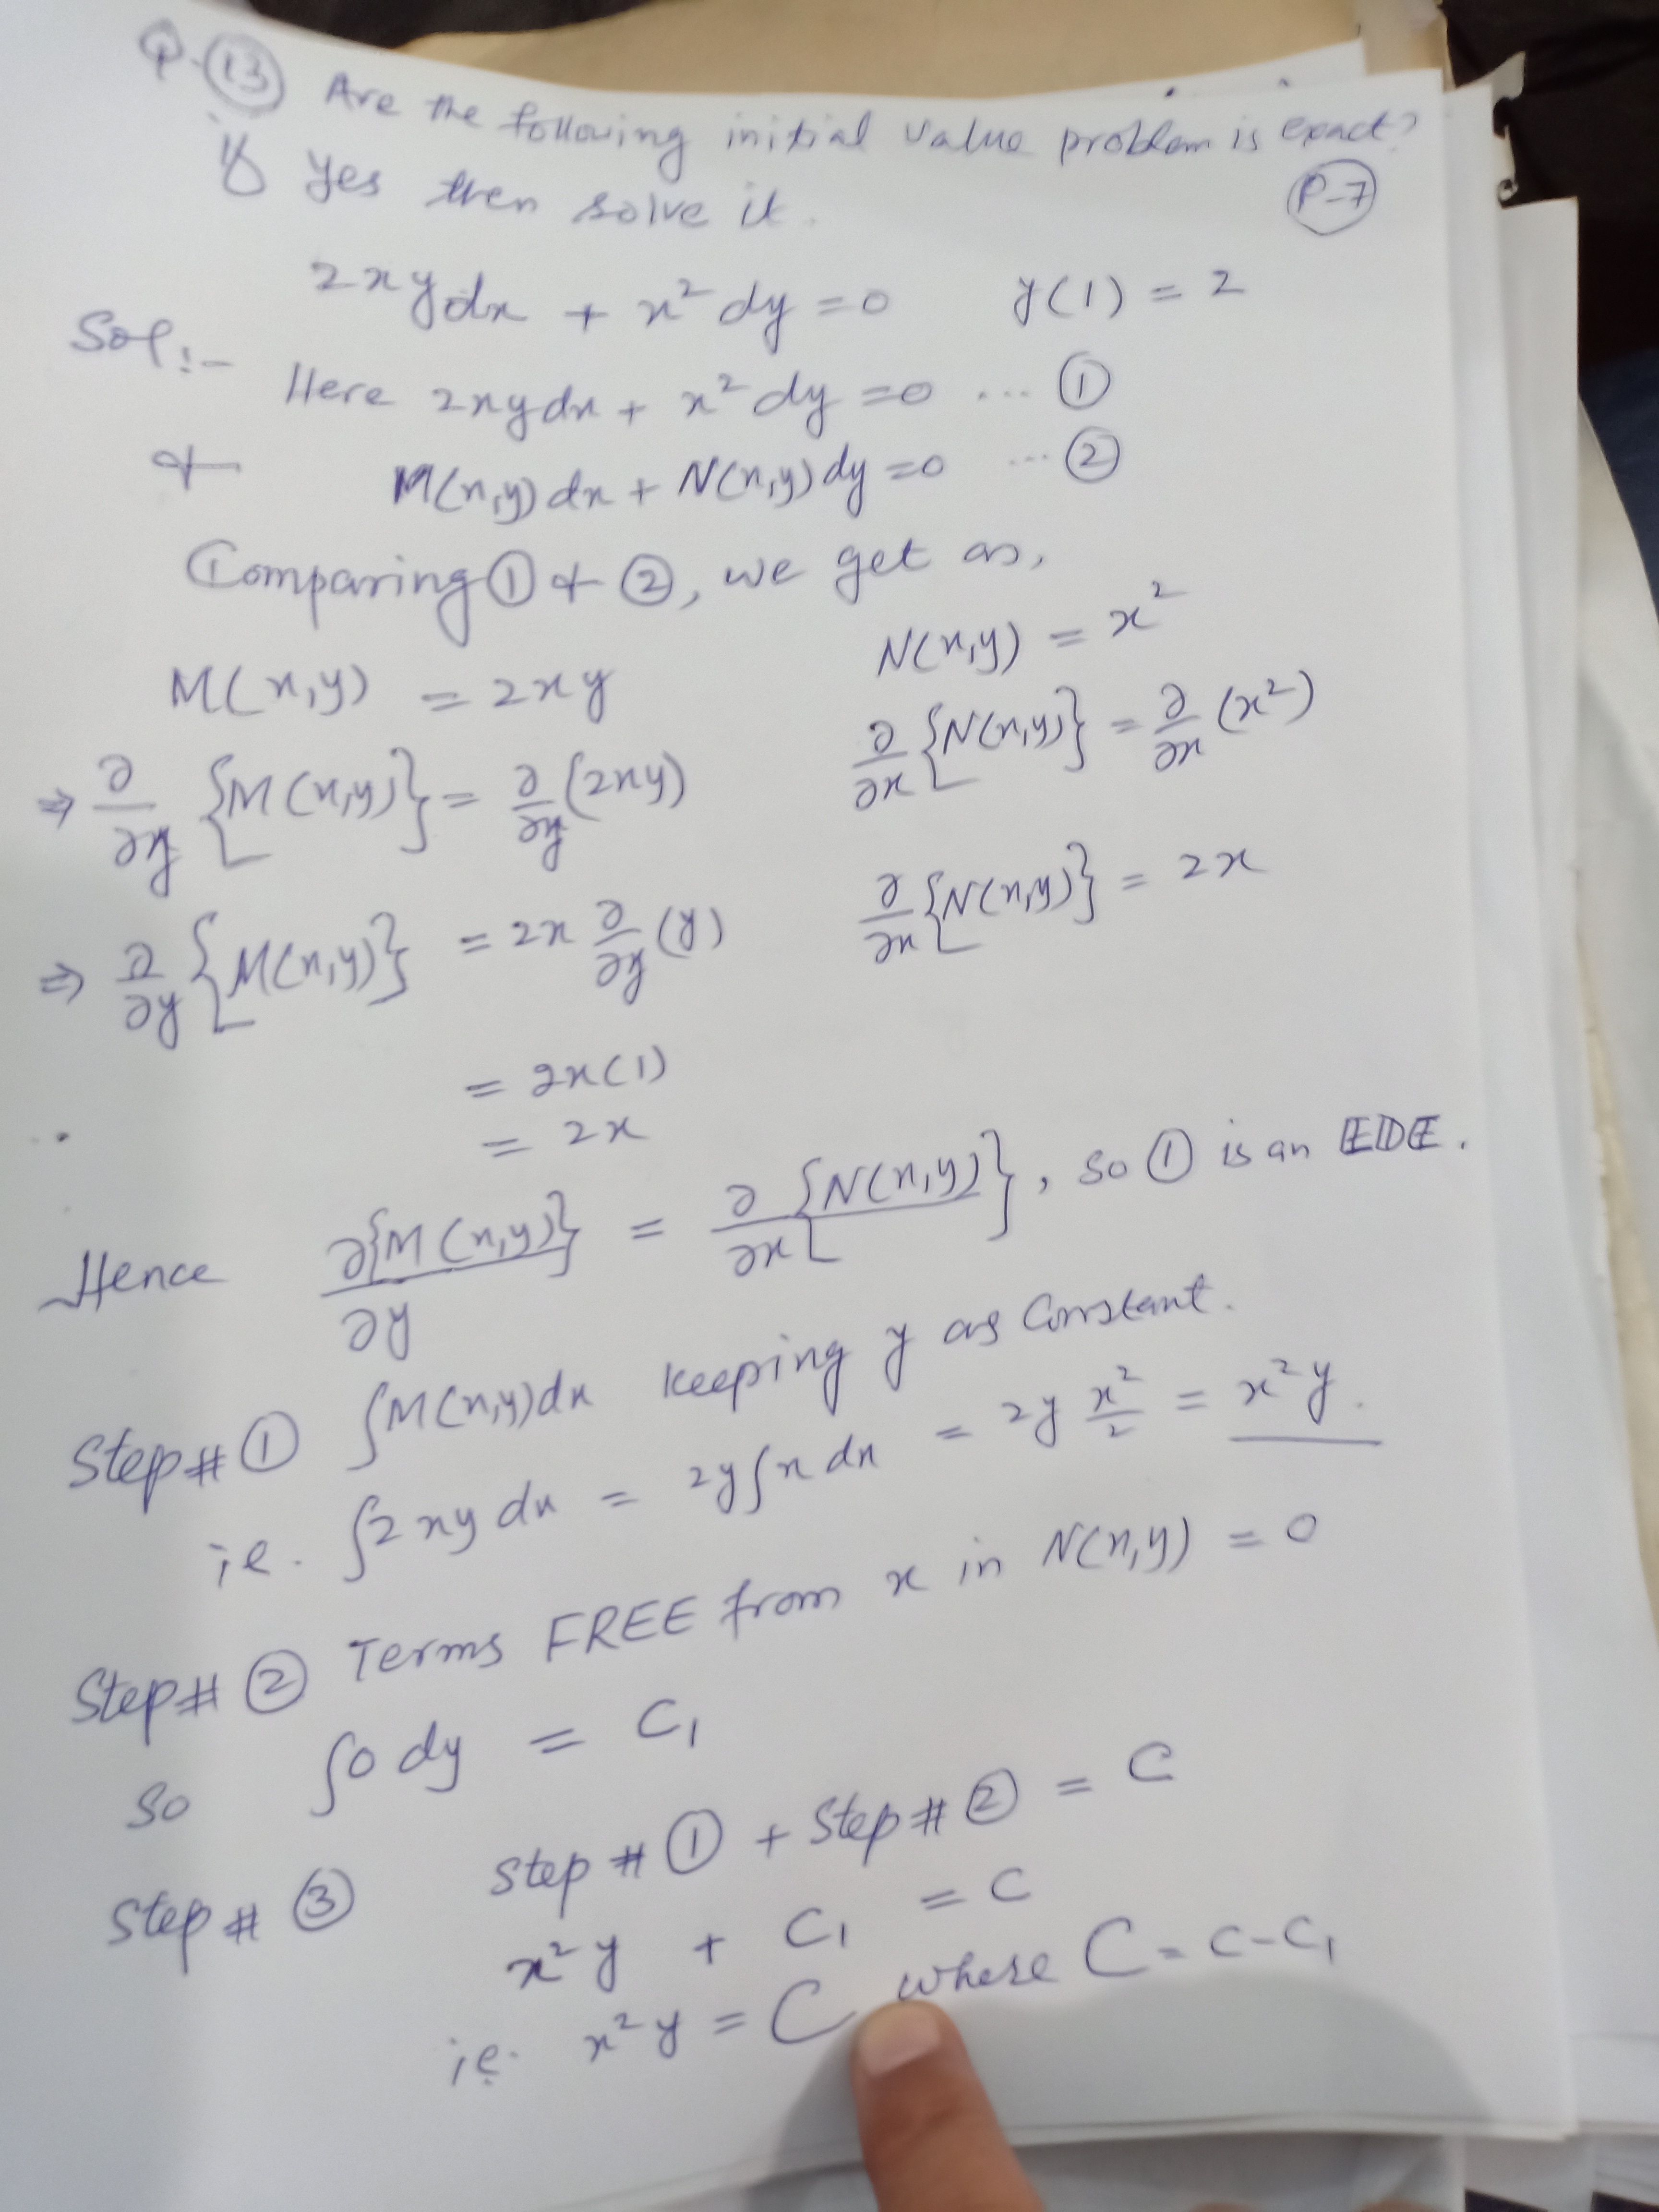 Q-(13) Are the following initial value problem is exact?
if yes then solve it.
(P-7)
2xydx + x² dy = 0 y(1) = 2
Sol:-
Here 2xydx + x² dy = 0 ... ①
& M(x,y) dx + N(x,y) dy = 0 ... ②
Comparing ① & ②, we get as,
M(x,y) = 2xy N(x,y) = x²
⇒ ∂/∂y {M(x,y)} = ∂/∂y (2xy) ∂/∂x {N(x,y)} = ∂/∂x (x²)
⇒ ∂/∂y {M(x,y)} = 2x ∂/∂y (y) ∂/∂x {N(x,y)} = 2x
= 2x(1)
= 2x
Hence ∂{M(x,y)}/∂y = ∂{N(x,y)}/∂x, so ① is an EDE.
Step# ① ∫M(x,y)dx keeping y as Constant.
i.e. ∫2xy dx = 2y∫x dx = 2y x²/2 = x²y.
Step# ② Terms FREE from x in N(x,y) = 0
so ∫0 dy = C₁
Step# ③ Step# ① + Step# ② = C
x²y + C₁ = C
i.e. x²y = C where C = C-C₁